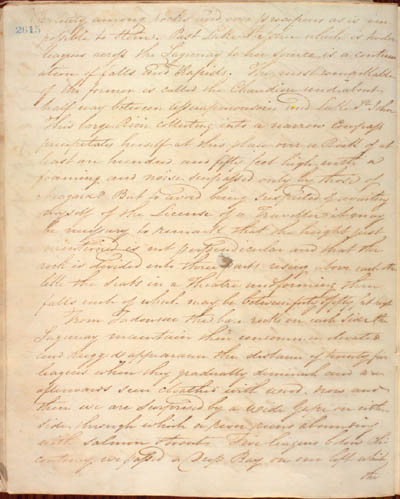 2615
among rocks and over precipices as is im
possible to
leagues across the Saguenay to her source, is a continu
ation of falls and Rapids. The most remarkable
of the former is called the Chaudiere and about
half way between and Lake St. John
This large River collecting into a narrow Compass
precipitates himself at this place over a Rock of at
least one hundred and fifty feet high with a
foaming and noise surpassed only by those of
Niagara. But to avoid being suspected of
myself of the License of a Traveller it may
be necessary to remark that the height just
mentioned is not perpendicular and that the
rock is divided into three parts rising above each other
like the Seats in a Theatre and forming three
falls each of which may be between forty & fifty feet
From Tadousac the bare rocks on each side the
Saguenay maintain their
and rugged appearance the distance of twenty five
leagues when they gradually diminish and are
afterwards seen cloathed with wood, now and
then we are surprised by a wide gape on either
side through which a river pours abounding
with salmon trouts. Five leagues below Chi
coutimy we passed a deep Bay on our left which
the